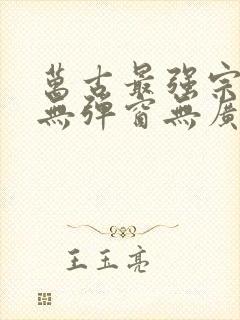 萬古最强宗
無彈窗無廣
王玉亮